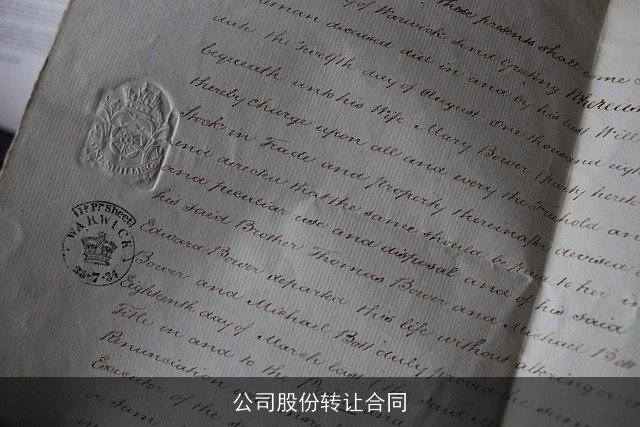 of Warwick send Greeting Whereas
deceased did in and by his last Will
date the Twelfth day of August One thousand eigh
bequeath unto his Wife Mary Bower (party here
thereby charge upon all and every the Freehold an
Stock in Trade and property thereinafter devised
and directed that the same should be paid to her
and peculiar use and disposal and of his said
his said Brother Thomas Bower and Michael Bott
Edward Bower departed this life without altering or
Bower and Michael Bott duly proved the same
Eighteenth day of March last
Title in and to the
Renunciation
Executor of the
or Sum
ONE SHILLING
11 Pr Sheet
WARWICK
23·7·34
公司股份转让合同